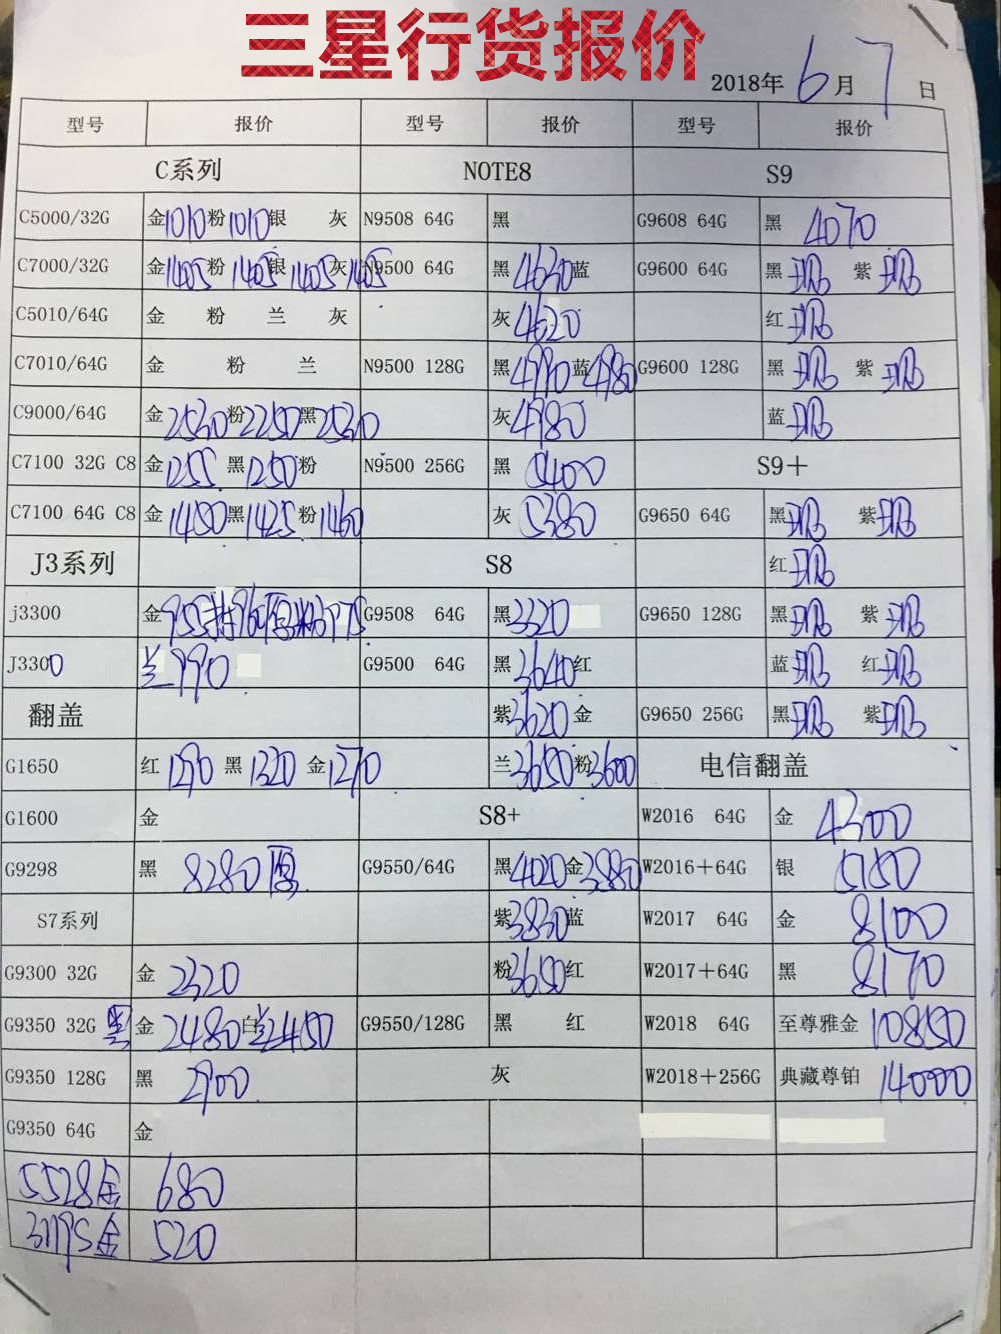 三星行货报价
2018年 6月 7日
型号 报价 型号 报价 型号 报价
C系列 NOTE8 S9
C5000/32G 金1010粉1010银 灰 N9508 64G 黑 G9608 64G 黑 4070
C7000/32G 金1405粉1405银1405灰1405 N9500 64G 黑4630蓝 G9600 64G 黑 现 紫 现
C5010/64G 金 粉 兰 灰 灰4620 红 现
C7010/64G 金 粉 兰 N9500 128G 黑4990蓝4980 G9600 128G 黑 现 紫 现
C9000/64G 金2530粉2250黑2530 灰4980 蓝 现
C7100 32G C8 金1255 黑1250粉 N9500 256G 黑 5400 S9+
C7100 64G C8 金1480黑1425粉1460 灰 5380 G9650 64G 黑现 紫现
J3系列 S8 红现
j3300 金955持960原粉975 G9508 64G 黑3320 G9650 128G 黑现 紫 现
J3300 兰990 G9500 64G 黑3640红 蓝 现 红现
翻盖 紫3620金 G9650 256G 黑现 紫现
G1650 红1290 黑1320 金1270 兰3650粉3600 电信翻盖
G1600 金 S8+ W2016 64G 金 4300
G9298 黑 8280原 G9550/64G 黑4020金3880 W2016+64G 银 5150
S7系列 紫3830蓝 W2017 64G 金 8100
G9300 32G 金 2320 粉3650红 W2017+64G 黑 8170
G9350 32G 黑 金 2480白兰2450 G9550/128G 黑 红 W2018 64G 至尊雅金 10850
G9350 128G 黑 2900 灰 W2018+256G 典藏尊铂 14000
G9350 64G 金
5528金 680
31195金 520